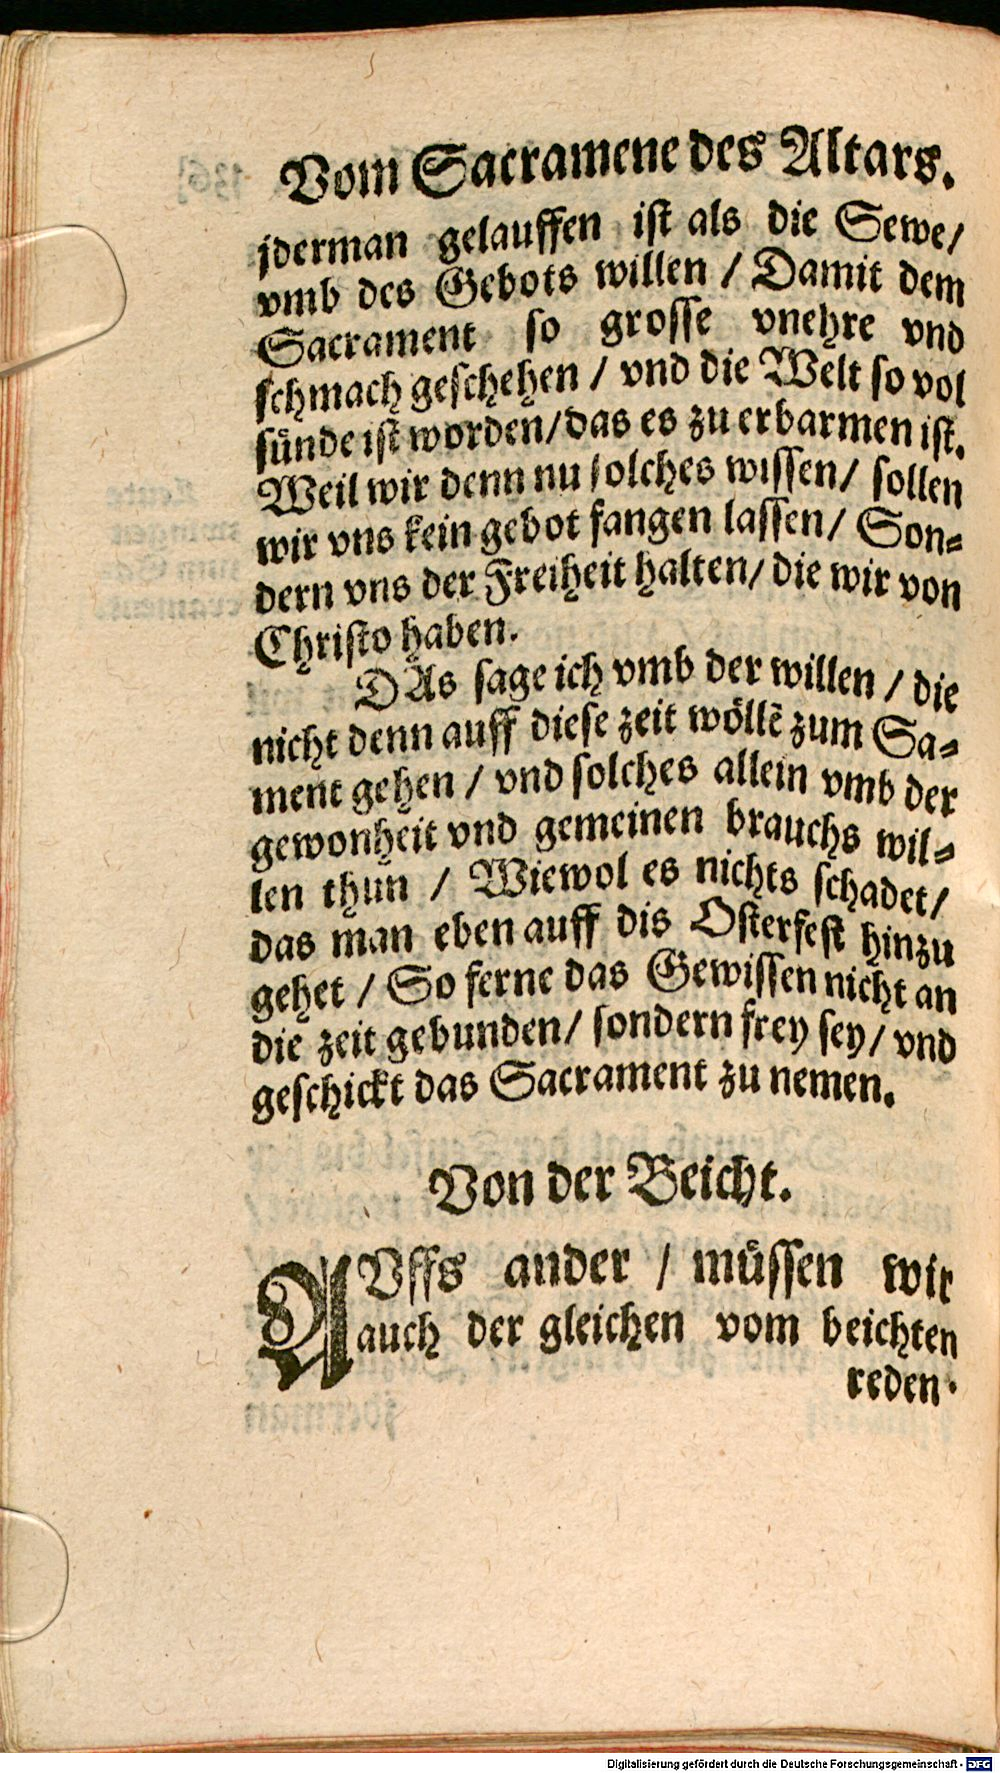 Vom Sacramene des Altars.
jderman gelauffen ist als die Sewe/
vmb des Gebots willen / Damit dem
Sacrament so grosse vnehre vnd
schmach geschehen / vnd die Welt so vol
sünde ist worden/das es zu erbarmen ist.
Weil wir denn nu solches wissen/ sollen
wir vns kein gebot fangen lassen/ Son⸗
dern vns der Freiheit halten/ die wir von
Christo haben.
DAs sage ich vmb der willen / die
nicht denn auff diese zeit wöllẽ zum Sa⸗
ment gehen / vnd solches allein vmb der
gewonheit vnd gemeinen brauchs wil⸗
len thun / Wiewol es nichts schadet/
das man eben auff dis Osterfest hinzu
gehet / So ferne das Gewissen nicht an
die zeit gebunden/ sondern frey sey/ vnd
geschickt das Sacrament zu nemen.
Von der Beicht.
AVffs ander / müssen wir
auch der gleichen vom beichten
reden.
Digitalisierung gefördert durch die Deutsche Forschungsgemeinschaft - DFG